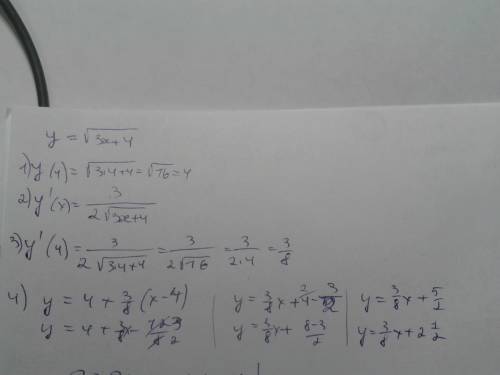 y = √(3x+4)
1) y(4) = √(3·4+4) = √16 = 4
2) y'(x) = 3/(2√(3x+4))
3) y'(4) = 3/(2√(3·4+4)) = 3/(2√16) = 3/(2·4) = 3/8
4) y = 4 + 3/8 (x-4)
y = 4 + 3/8x -
y = 3/8x + 4 - 3/2
y = 3/8x + (8-3)/2
y = 3/8x + 5/2
y = 3/8x + 2 1/2